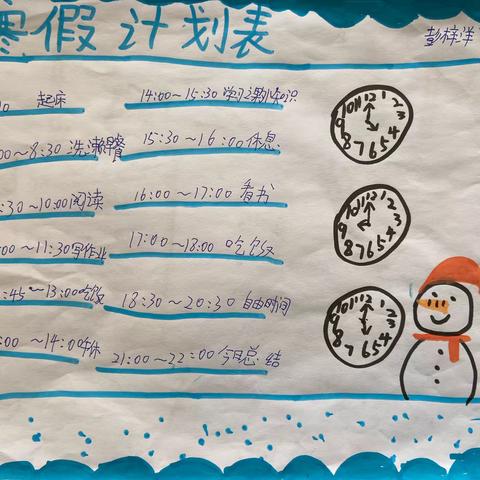 寒假计划表
彭梓洋
00 起床
00~8:30 洗漱早餐
:30~10:00阅读
:00~11:30写作业
:45~13:00吃饭
:00~14:00午休
14:00~15:30 学习课外知识
15:30~16:00休息
16:00~17:00 看书
17:00~18:00 吃饭
18:30~20:30 自由时间
21:00~22:00今日总结
10 11 12 1 2 3 4 5 6 7 8 9
10 11 12 1 2 3 4 5 6 7 8 9
10 11 12 1 2 3 4 5 6 7 8 9